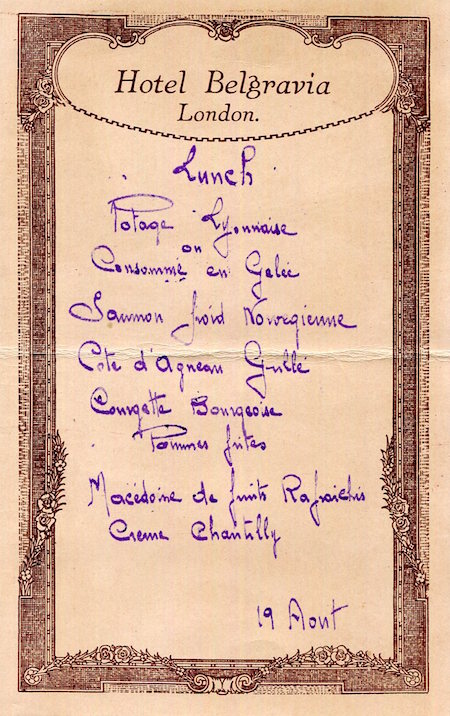 Hotel Belgravia
London.
Lunch
Potage Lyonnaise
ou
Consommé en Gelée
Saumon froid Norvegienne
Cote d'Agneau Grillé
Courgette Bourgeoise
Pommes frites
Macédoine de fruits Rafraichis
Creme Chantilly
19 Aout